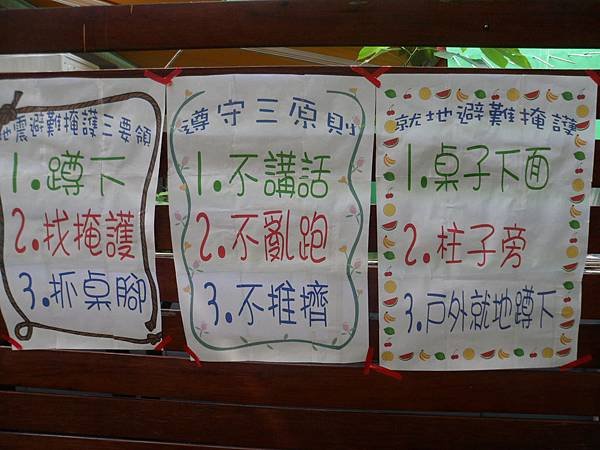 地震避難掩護三要領
1.蹲下
2.找掩護
3.抓桌腳
遵守三原則
1.不講話
2.不亂跑
3.不推擠
就地避難掩護
1.桌子下面
2.柱子旁
3.戶外就地蹲下